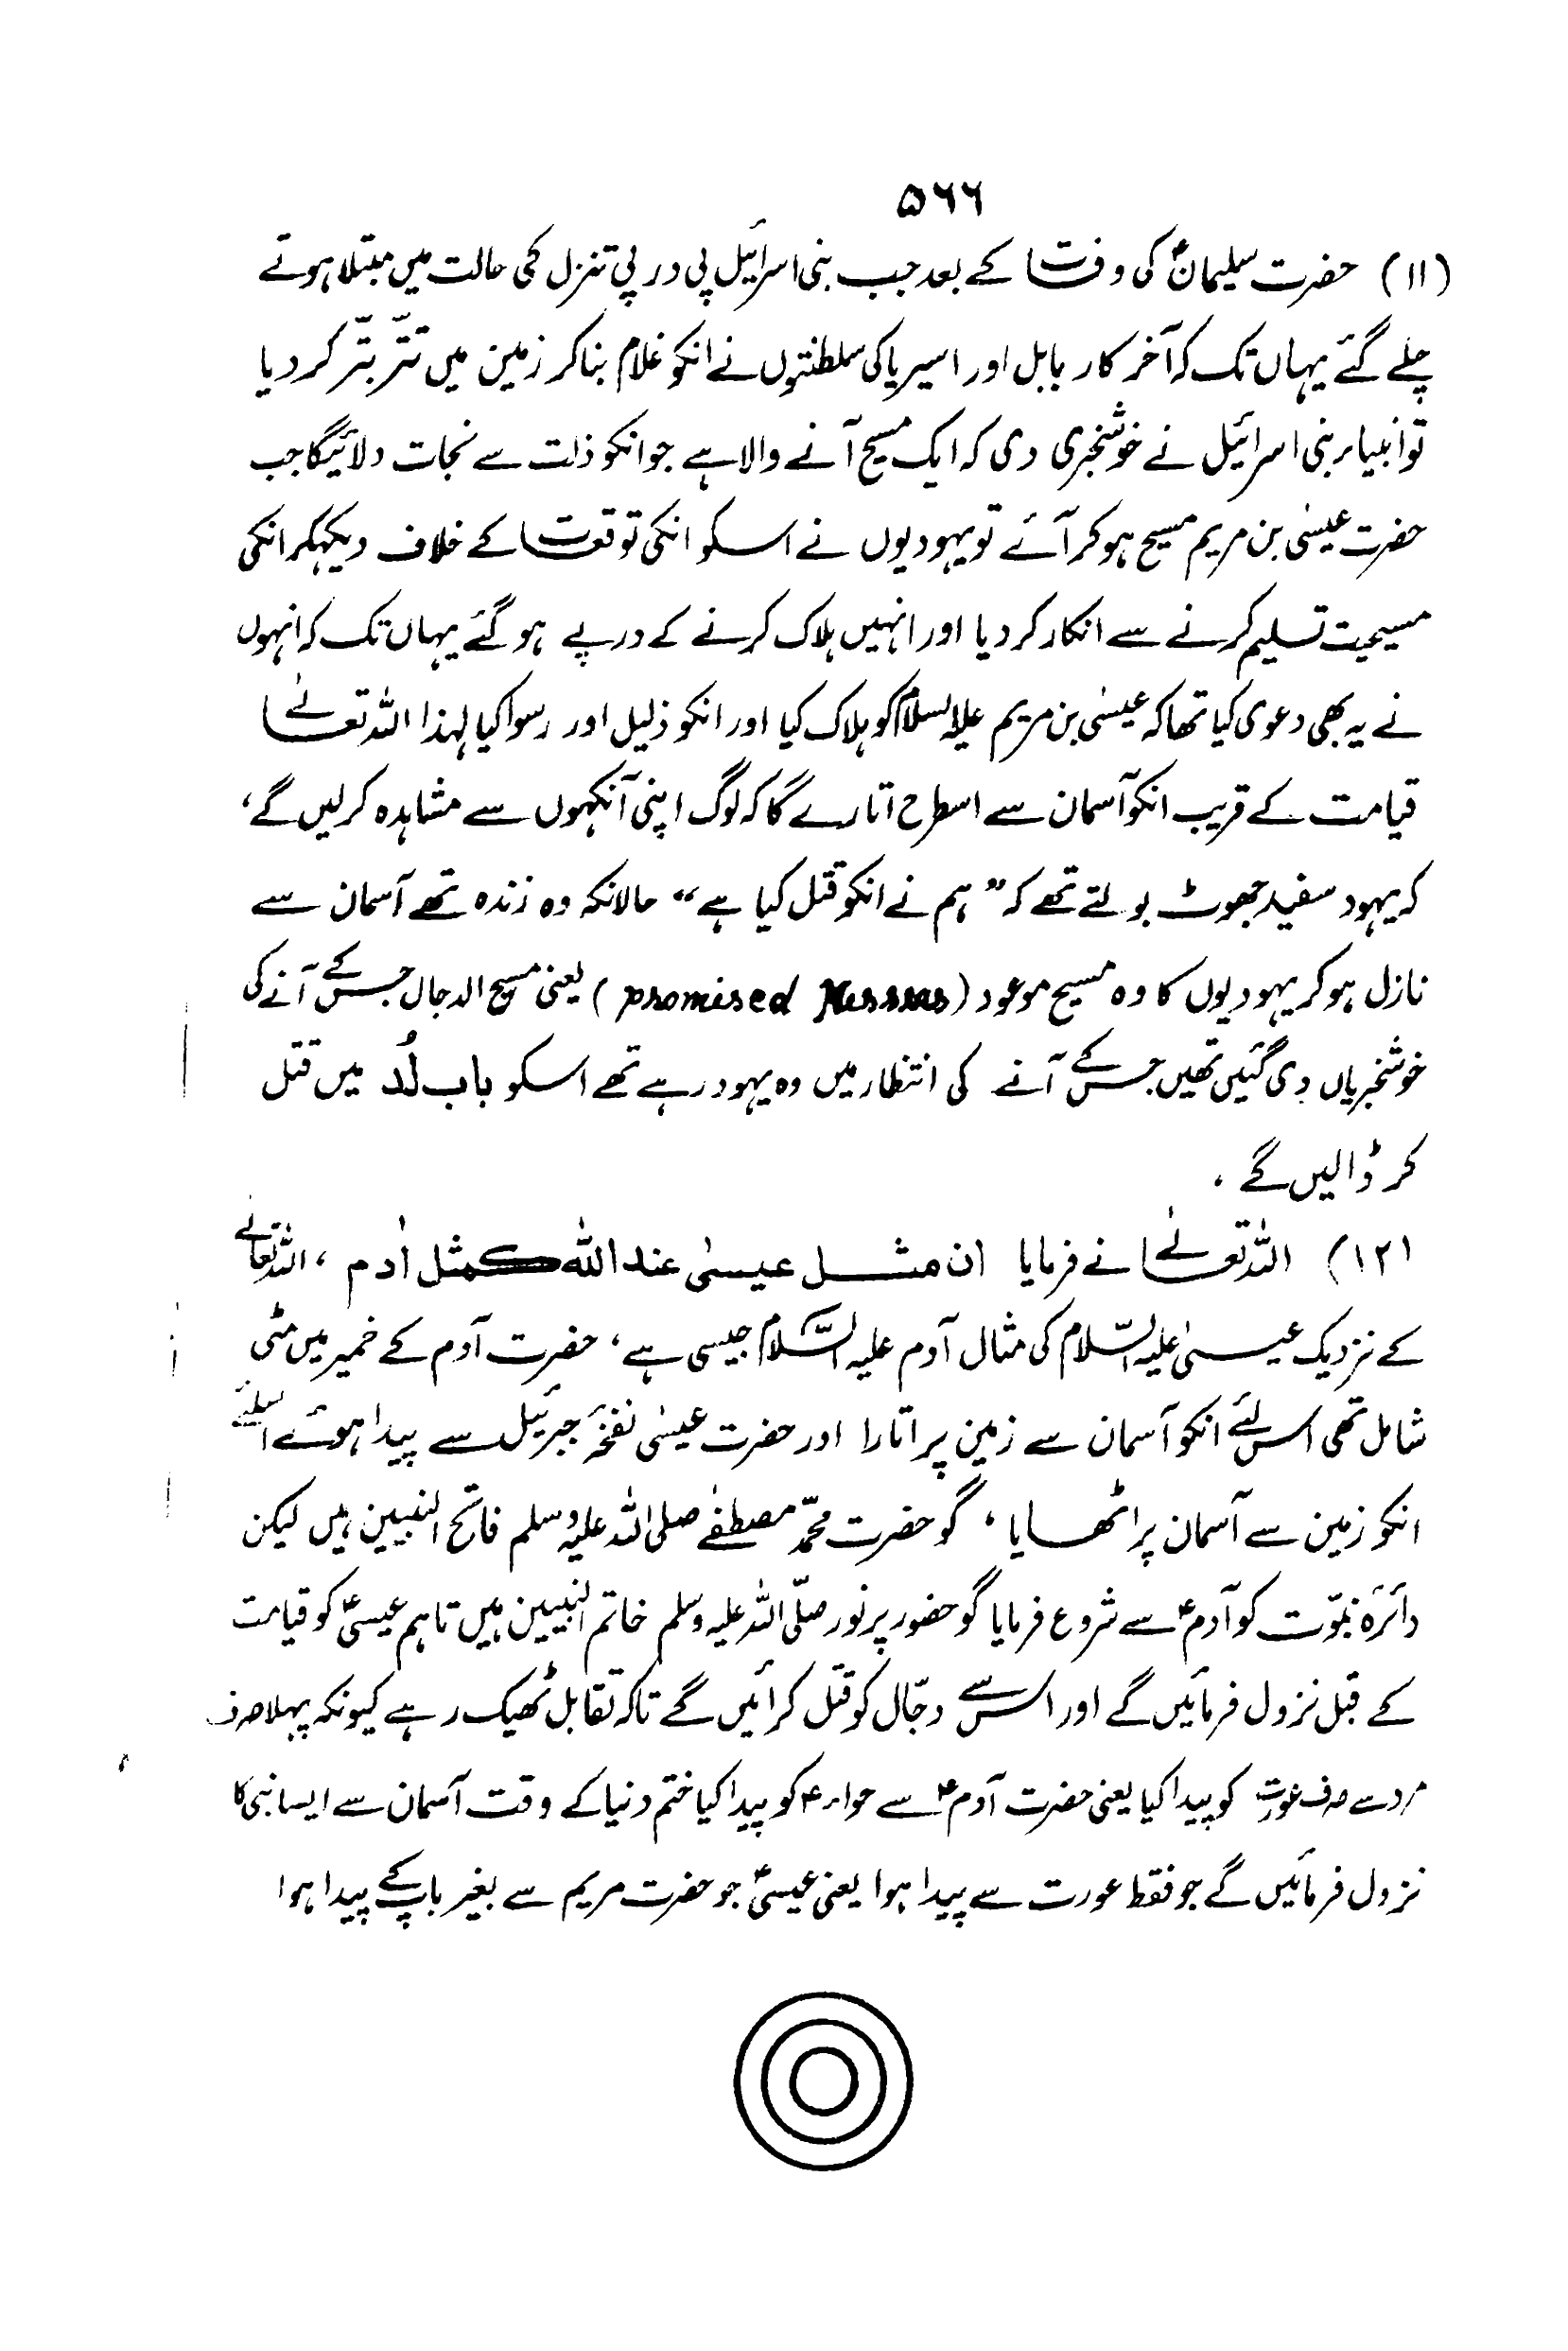 ۵۶۶
(۱۱) حضرت سلیمانؑ کی وفات کے بعد جب بنی اسرائیل پی در پی تنزل کی حالت میں مبتلا ہوتے
چلے گئے یہاں تک کہ آخر کار بابل اور اسیریا کی سلطنتوں نے انکو غلام بنا کر زمین میں تتّر بتّر کر دیا
تو انبیاء بنی اسرائیل نے خوشخبری دی کہ ایک مسیح آنے والا ہے جو انکو ذلت سے نجات دلائیگا جب
حضرت عیسٰی بن مریم مسیح ہو کر آئے تو یہودیوں نے اسکو انکی توقعات کے خلاف دیکھکر انکی
مسیحیت تسلیم کرنے سے انکار کر دیا اور انہیں ہلاک کرنے کے درپے ہو گئے یہاں تک کہ انہوں
نے یہ بھی دعوی کیا تھا کہ عیسٰی بن مریم علیہ السلام کو ہلاک کیا اور انکو ذلیل اور رسوا کیا لہذا اللہ تعالٰے
قیامت کے قریب انکو آسمان سے اسطرح اتارے گا کہ لوگ اپنی آنکھوں سے مشاہدہ کر لیں گے،
کہ یہود سفید جھوٹ بولتے تھے کہ ”ہم نے انکو قتل کیا ہے“ حالانکہ وہ زندہ تھے آسمان سے
نازل ہو کر یہودیوں کا وہ مسیح موعود (promised Messias) یعنی مسیح الدجال جس کے آنے کی
خوشخبریاں دی گئیں تھیں جس کے آنے کی انتظار میں وہ یہود رہے تھے اسکو باب لُد میں قتل
کر ڈالیں گے ،
(۱۲) اللہ تعالٰے نے فرمایا ان مثل عیسیٰ عند اللہ کمثل اٰدم ، اللہ تعالٰے
کے نزدیک عیسیٰ علیہ السّلام کی مثال آدم علیہ السَّلام جیسی ہے ، حضرت آدم کے خمیر میں مٹی
شامل تھی اس لئے انکو آسمان سے زمین پر اتارا اور حضرت عیسٰی نفخۂ جبرئیل سے پیدا ہوئے اسلئے
انکو زمین سے آسمان پر اٹھایا ، گو حضرت محمّد مصطفٰے صلی اللہ علیہ وسلم فاتح النبیین ہیں لیکن
دائرۂ نبوّت کو آدم ؑ سے شروع فرمایا گو حضور پرنور صلّی اللہ علیہ وسلم خاتم النبیین ہیں تاہم عیسیؑ کو قیامت
کے قبل نزول فرمائیں گے اور اس سے دجّال کو قتل کرائیں گے تاکہ تقابل ٹھیک رہے کیونکہ پہلا صرف
مرد سے صرف عورت کو پیدا کیا یعنی حضرت آدم ؑ سے حواء ؑ کو پیدا کیا ختم دنیا کے وقت آسمان سے ایسا نبی کا
نزول فرمائیں گے جو فقط عورت سے پیدا ہوا یعنی عیسیؑ جو حضرت مریم سے بغیر باپ کے پیدا ہوا